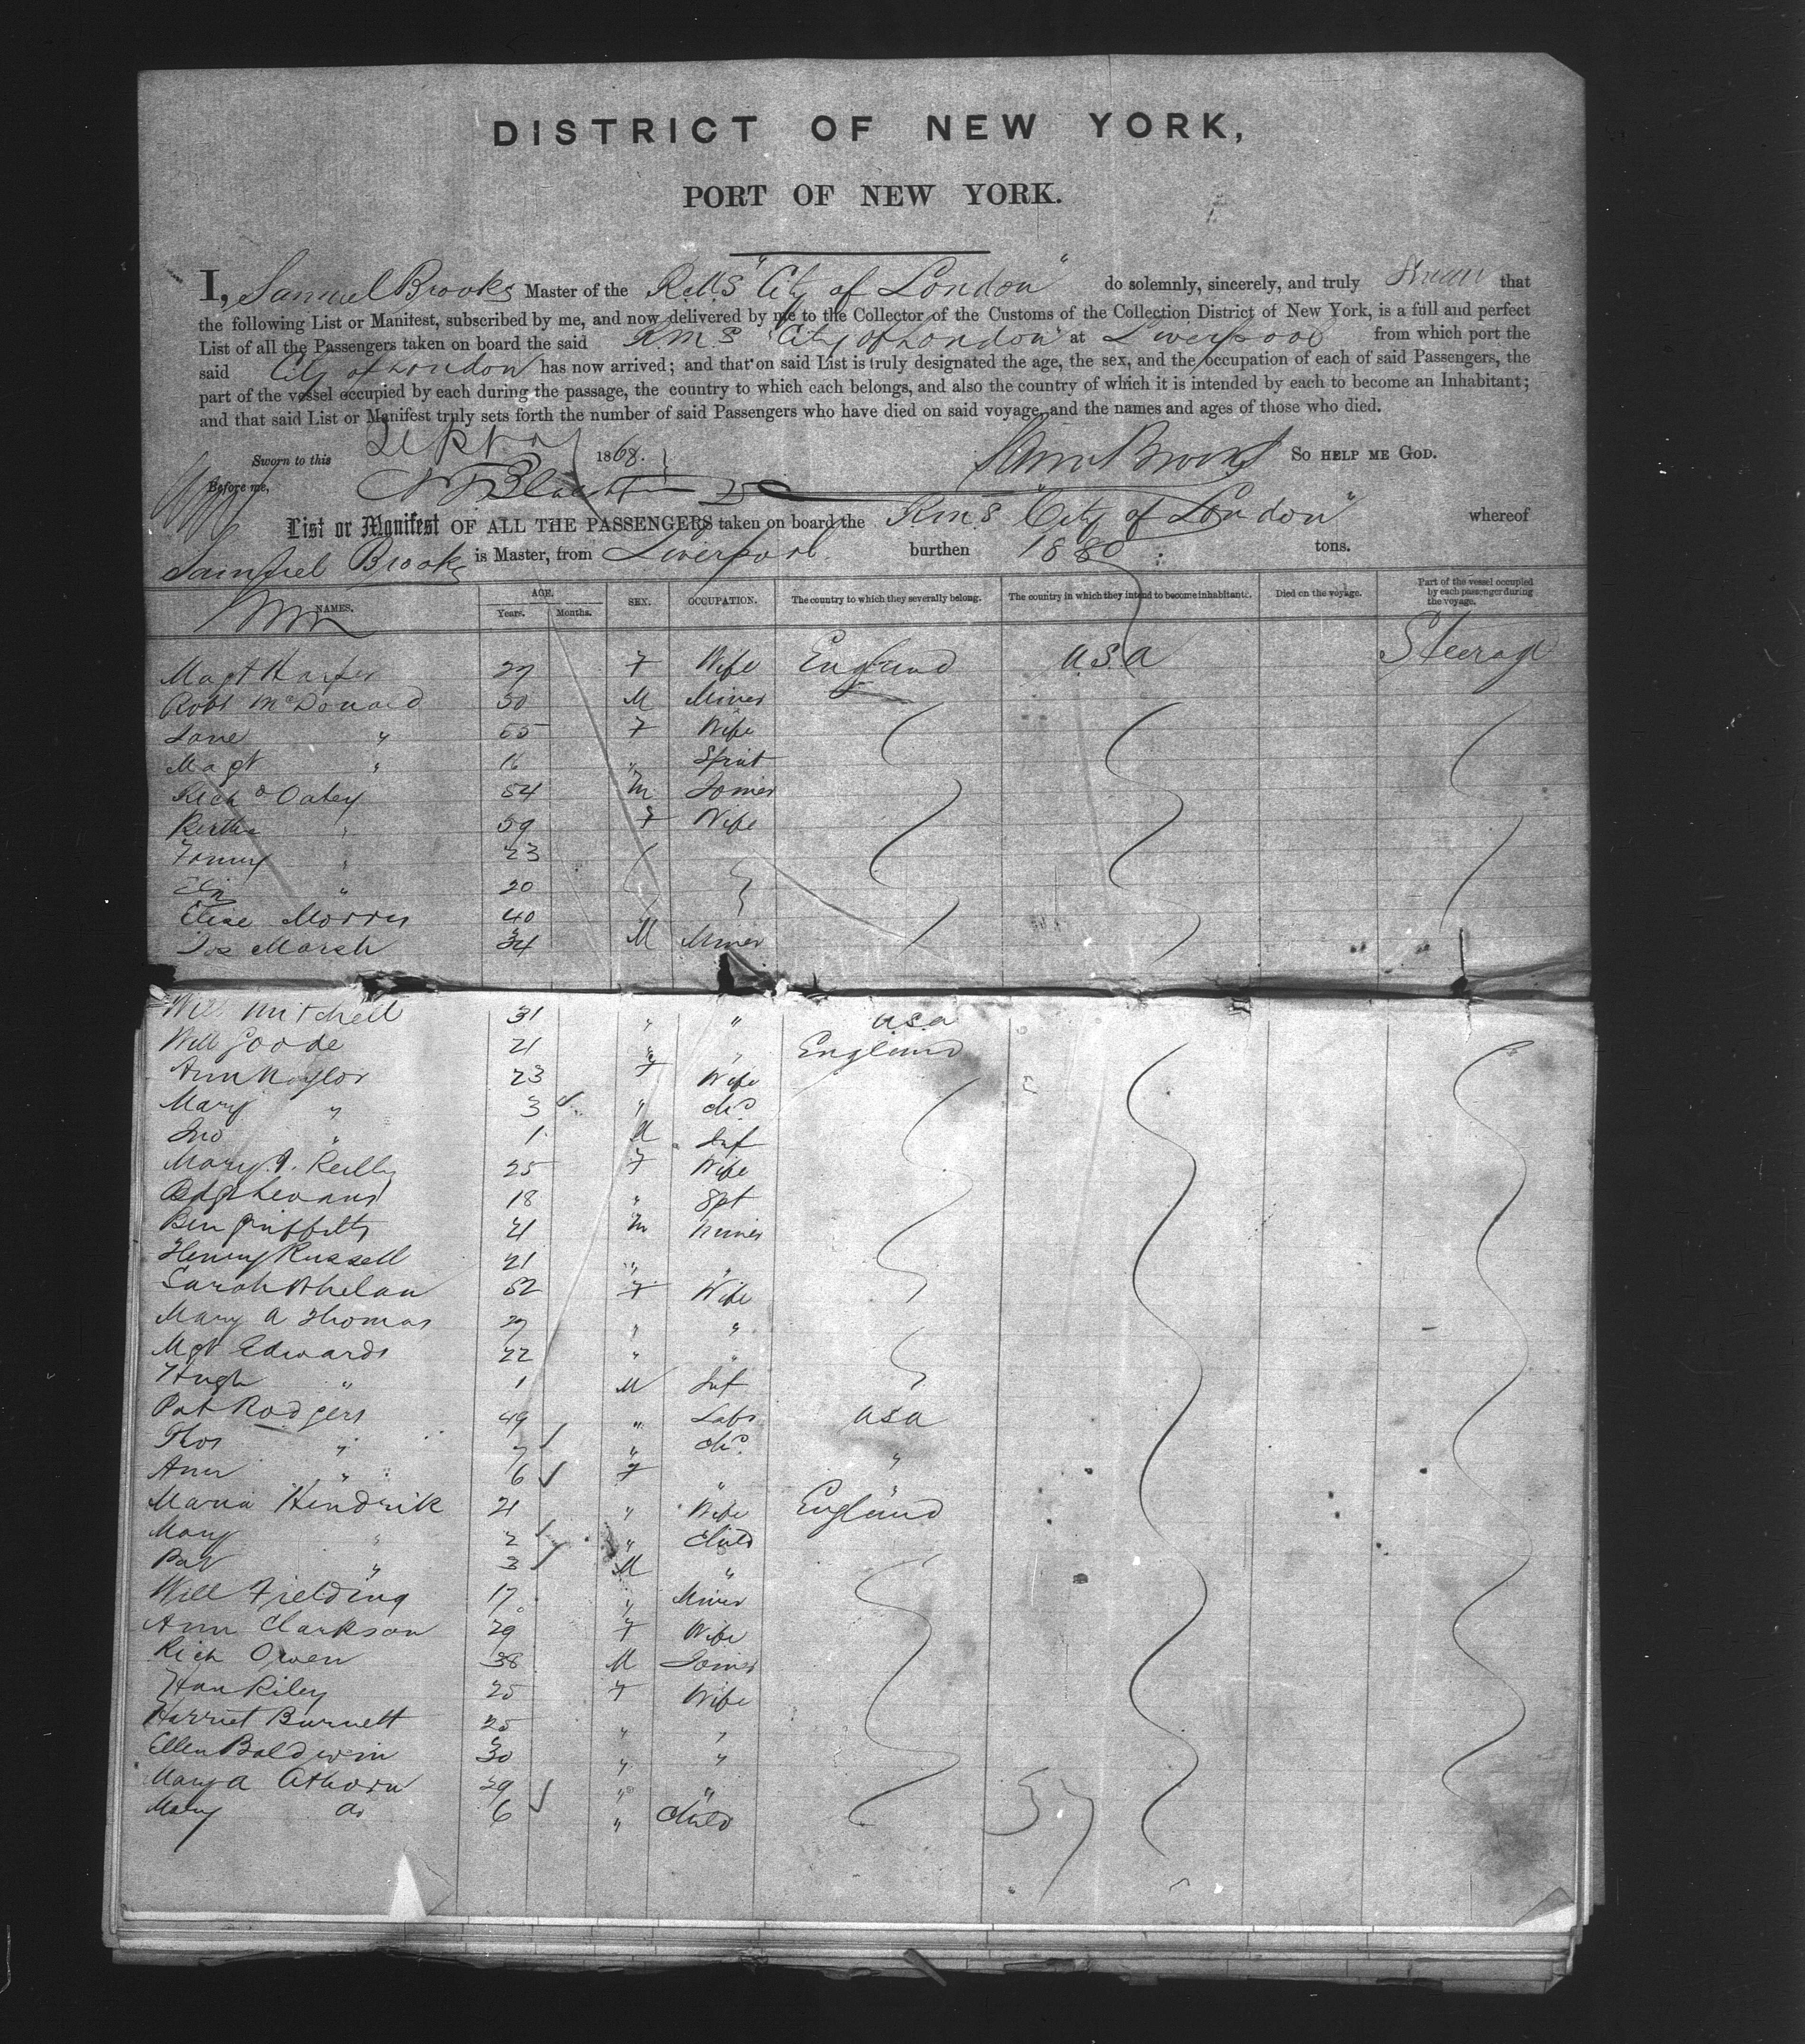 DISTRICT OF NEW YORK,
PORT OF NEW YORK.
I, Samuel Brooks Master of the RMS "City of London" do solemnly, sincerely, and truly Swear that
the following List or Manifest, subscribed by me, and now delivered by me to the Collector of the Customs of the Collection District of New York, is a full and perfect
List of all the Passengers taken on board the said RMS "City of London" at Liverpool from which port the
said City of London has now arrived; and that on said List is truly designated the age, the sex, and the occupation of each of said Passengers, the
part of the vessel occupied by each during the passage, the country to which each belongs, and also the country of which it is intended by each to become an Inhabitant;
and that said List or Manifest truly sets forth the number of said Passengers who have died on said voyage, and the names and ages of those who died.
Sworn to this Sept 1868. Saml Brooks SO HELP ME GOD.
Before me,
List or Manifest OF ALL THE PASSENGERS taken on board the RMS "City of London" whereof
Samuel Brooks is Master, from Liverpool burthen 1880 tons.
NAMES. AGE. Years. Months. SEX. OCCUPATION. The country to which they severally belong. The country in which they intend to become inhabitants. Died on the voyage. Part of the vessel occupied by each passenger during the voyage.
Magt Harper 27 F Wife England USA Steerage
Robt McDonald 50 M Miner
Jane " 55 F Wife
Magt " 16 " Spinst
Richd Oatey 54 M Joiner
Bertha " 59 F Wife
Fanny " 23
Eliz " 20
Elise Morris 40
Jos Marsh 34 M Miner
Will Mitchell 31 " " USA
Will Goode 21 " " England
Ann Naylor 23 F Wife
Mary " 3 " chd
Jno " 1 M Inf
Mary J. Reilly 25 F Wife
18 " Spt
Ben Griffiths 21 M Miner
Henry Russell 21 " "
Sarah Whelan 52 F Wife
Mary A Thomas 27 " "
Mgt Edwards 22 " "
Hugh " 1 M Inf
Pat Rodgers 49 " Labr USA
Thos " 7 " chd "
Ann " 6 F "
Maria Hendrik 21 " Wife England
Mary " 2 " Child
Pat " 3 M "
Will Fielding 17 " Miner
Ann Clarkson 29 F Wife
Rich Owen 38 M Joiner
Han Riley 25 F Wife
Harriet Burnett 25 " "
Ellen Baldwin 30 " "
Mary A Athorn 29 " "
Mary Do 6 " Child
37